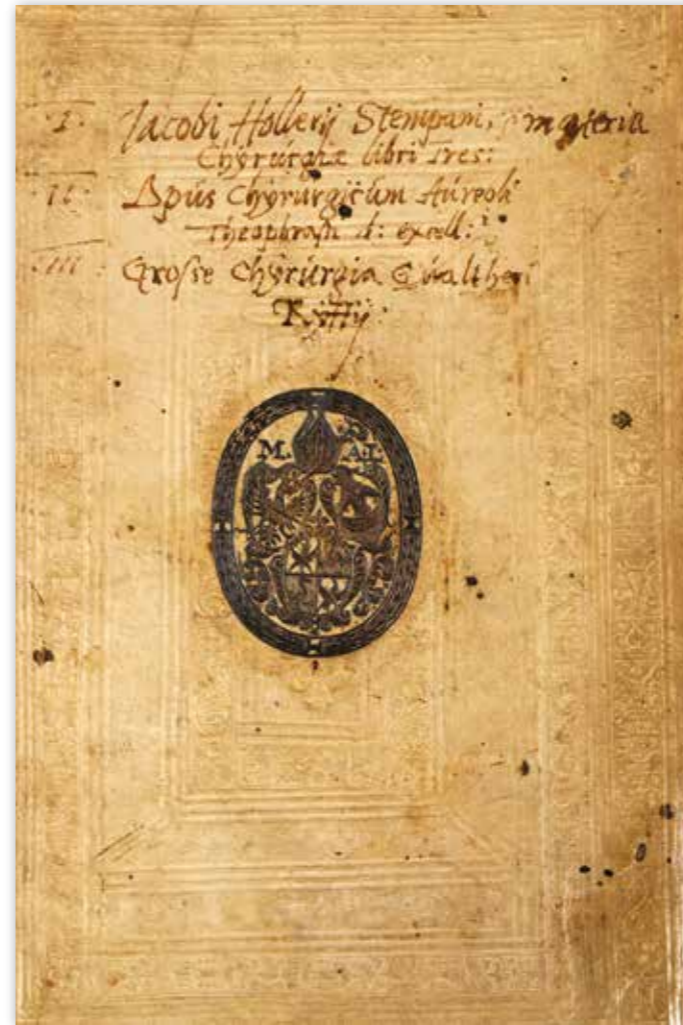 I. Jacobi Hollerij Stempani, materia
Chyrurgiæ libri Tres:
II: Opus Chyrurgicum Aureoli
Theophrasti excell:
III: Grosse Chyrurgia Gualtheri
Ryffij:
M. A. L.